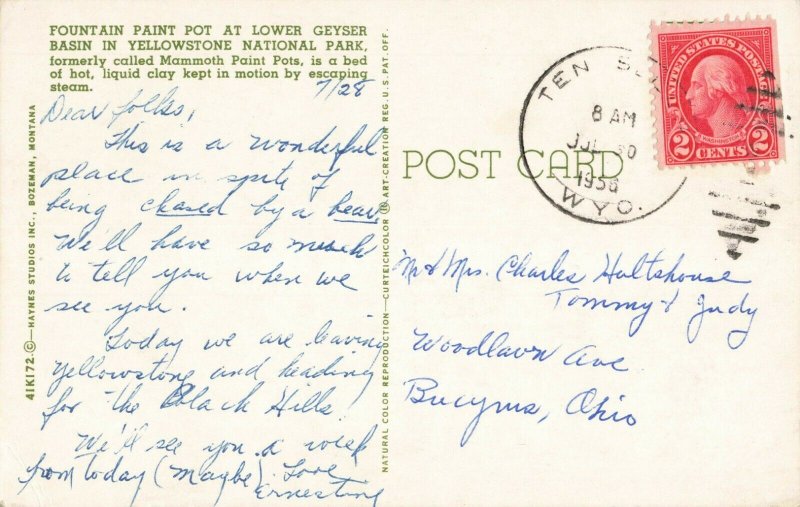 FOUNTAIN PAINT POT AT LOWER GEYSER
BASIN IN YELLOWSTONE NATIONAL PARK,
formerly called Mammoth Paint Pots, is a bed
of hot, liquid clay kept in motion by escaping
steam.
7/28
Dear folks,
This is a wonderful
place in spite of
being chased by a bear.
We'll have so much
to tell you when we
see you.
Today we are leaving
Yellowstone and heading
for the Black Hills.
We'll see you a week
from today (maybe). Love
Ernestine
41K172 ©—HAYNES STUDIOS INC., BOZEMAN, MONTANA
NATURAL COLOR REPRODUCTION—CURTEICHCOLOR ® ART-CREATION REG. U.S. PAT. OFF.
POST CARD
TEN
8 AM
JUL 30
1956
WYO.
UNITED STATES POSTAGE
WASHINGTON
2 CENTS 2
Mr & Mrs. Charles Hultshouse
Tommy & Judy
Woodlawn Ave
Bucyrus, Ohio